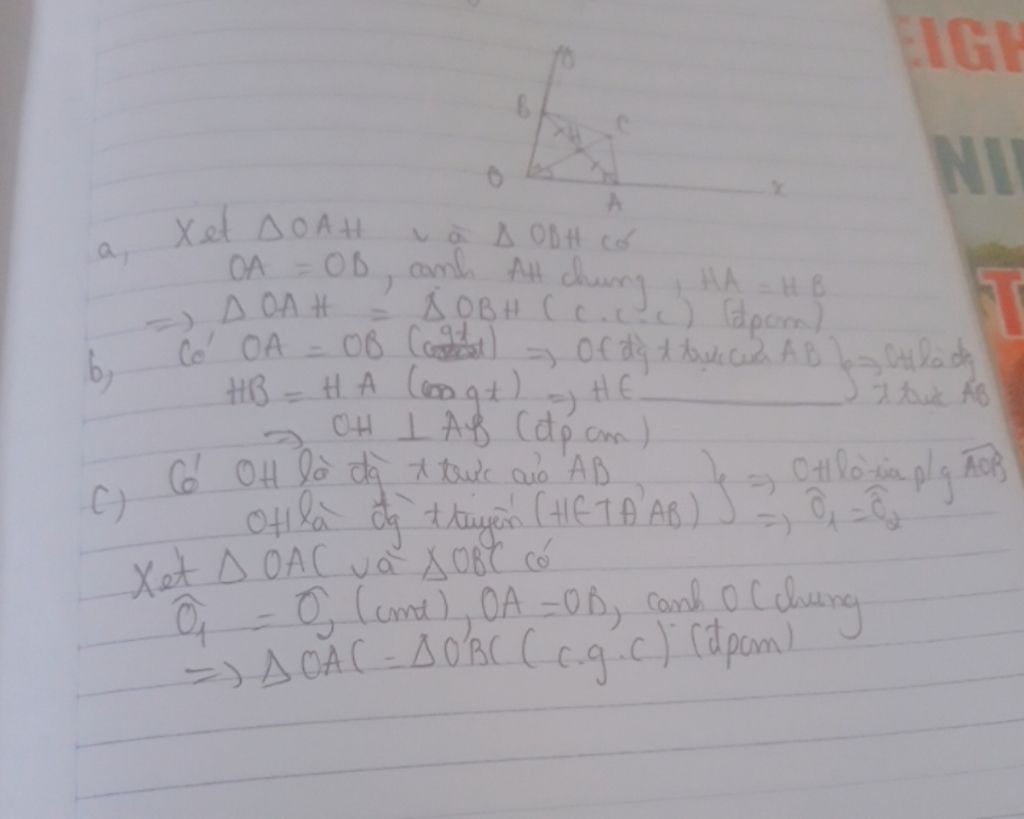 EIGH
NIN
T
B
C
H
O
A
x
a, Xét ΔOAH và ΔOBH có
OA = OB, cạnh AH chung, HA = HB
=> ΔOAH = ΔOBH (c.c.c) (đpcm)
b, Có OA = OB (gt) => OE đg t trực của AB } => OH là đg
HB = HA (gt) => HE ——— } t trực AB
=> OH ⊥ AB (đpcm)
c) Có OH là đg t trực của AB } => OH là tia p/g AOB
OH là đg t tuyến (HE AB) } => Ô1 = Ô2
Xét ΔOAC và ΔOBC có
Ô1 = Ô2 (cmt), OA = OB, cạnh OC chung
=> ΔOAC = ΔOBC (c.g.c) (đpcm)